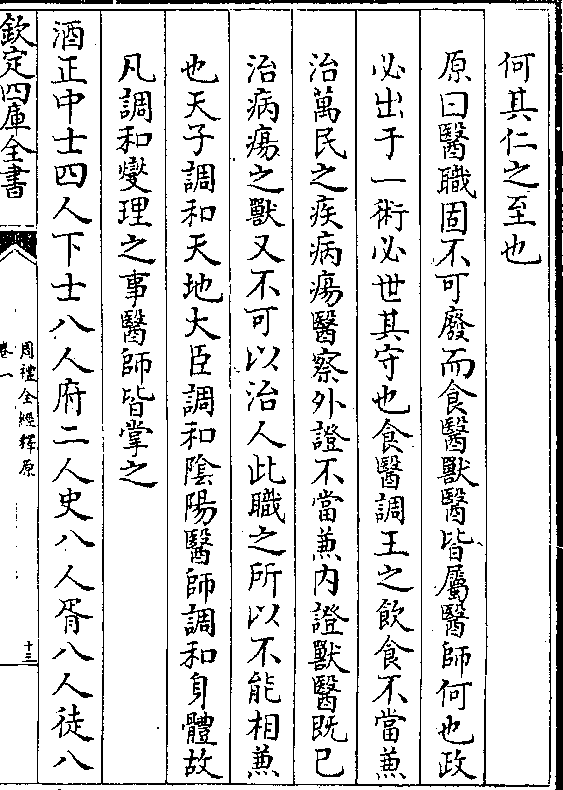 何其仁之至也
原曰醫職固不可廢而食醫獸醫皆屬醫師何也政
必出于一術必世其守也食醫調王之飲食不當兼
治萬民之疾病瘍醫察外證不當兼内證獸醫既已
治病瘍之獸又不可以治人此職之所以不能相兼
也天子調和天地大臣調和陰陽醫師調和身體故
凡調和燮理之事醫師皆掌之
酒正中士四人下士八人府二人史八人胥八人徒八
欽定四庫全書
周禮全經釋原
卷一
十三